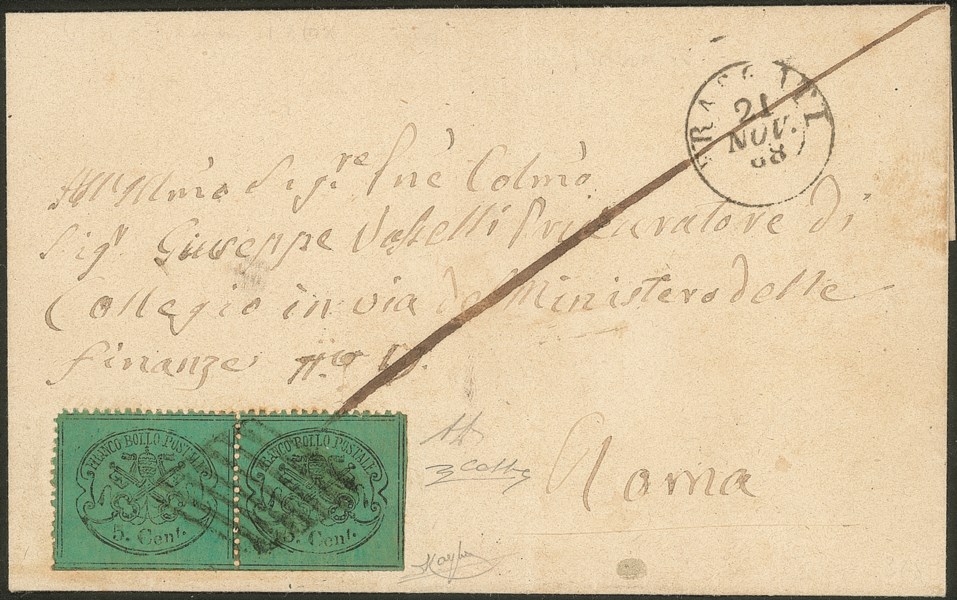 FRASCATI
21
NOV.
68
All'Illmo Sigre
Sigr Giuseppe Vaselli Procuratore di
Collegio in via del Ministero delle
finanze no
Roma
FRANCO BOLLO POSTALE
5. Cent.
FRANCO BOLLO POSTALE
5. Cent.